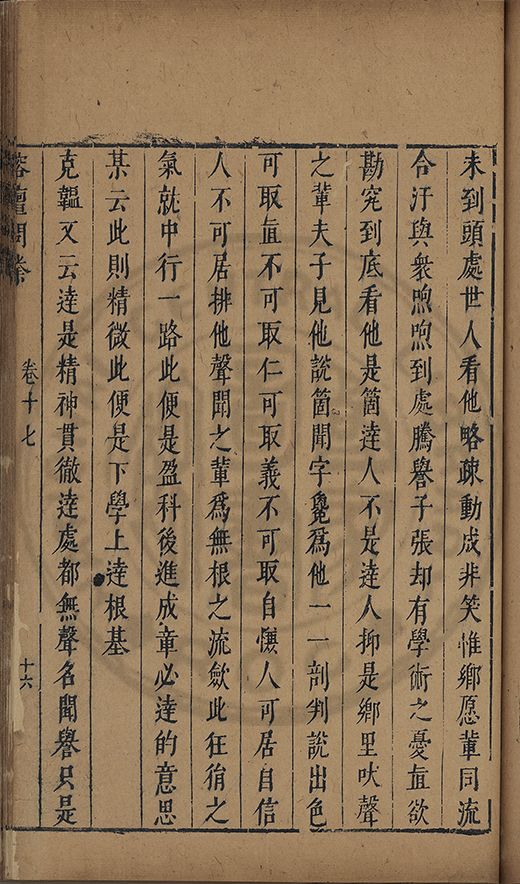 未到頭處世人看他略踈動成非笑惟鄉愿輩同流
合汙與衆喣喣到處騰譽子張却有學術之憂直欲
勘究到底看他是箇達人不是達人抑是鄉里吠聲
之輩夫子見他說箇聞字毚爲他一一剖判說出色
可取直不可取仁可取義不可取自慊人可居自信
人不可居排他聲聞之輩爲無根之流歛此狂狷之
氣就中行一路此便是盈科後進成章必達的意思
某云此則精微此便是下學上達根基
克韞又云達是精神貫徹達處都無聲名聞譽只是
榕壇問業
卷十七
十六